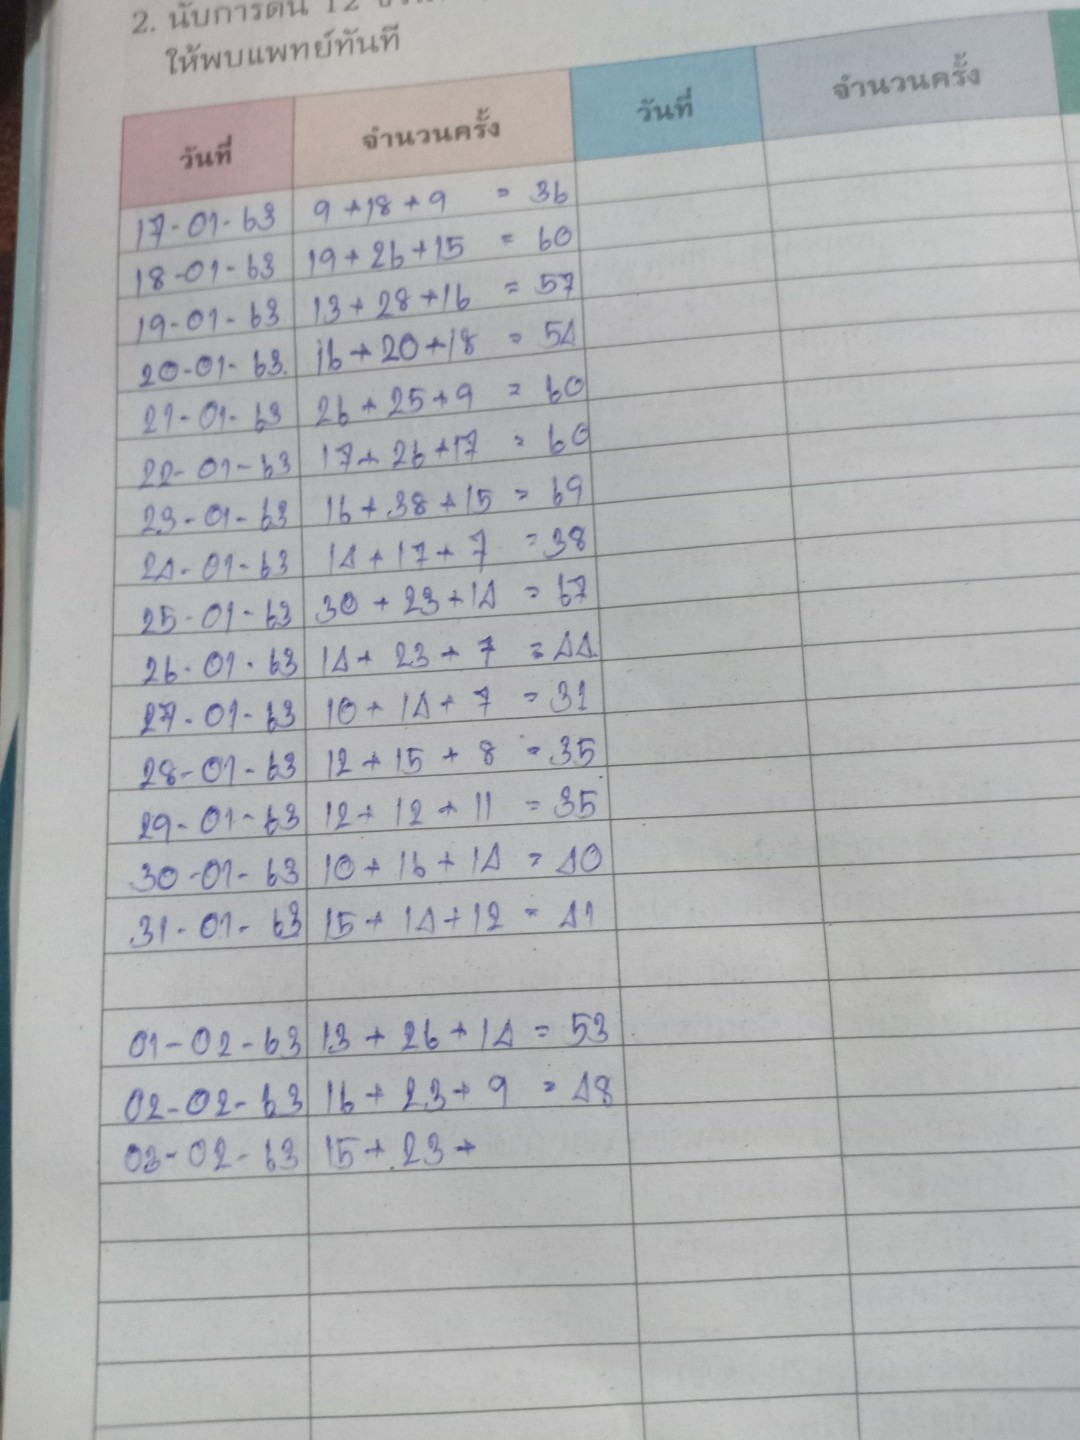 2. นับการดิ้น 12
ให้พบแพทย์ทันที
วันที่ จำนวนครั้ง วันที่ จำนวนครั้ง
17-01-63 9+18+9 = 36
18-01-63 19+26+15 = 60
19-01-63 13+28+16 = 57
20-01-63. 16+20+18 = 54
21-01-63 26+25+9 = 60
22-01-63 17+26+17 = 60
23-01-63 16+38+15 = 69
24-01-63 14+17+7 = 38
25-01-63 30+23+14 = 67
26-01-63 14+23+7 = 44.
27-01-63 10+14+7 = 31
28-01-63 12+15+8 = 35
29-01-63 12+12+11 = 35
30-01-63 10+16+14 = 40
31-01-63 15+14+12 = 41
01-02-63 13+26+14 = 53
02-02-63 16+23+9 = 48
03-02-63 15+23+